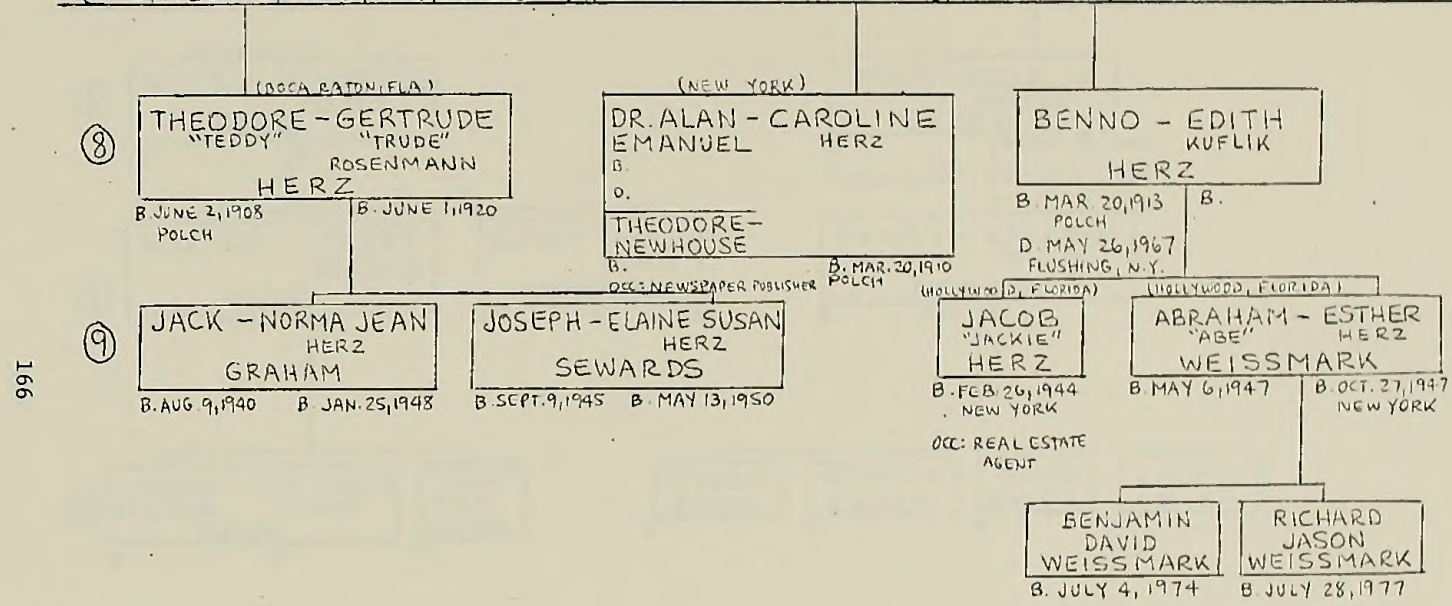 (BOCA RATON, FLA)
THEODORE - GERTRUDE
"TEDDY" "TRUDE"
ROSENMANN
HERZ
B. JUNE 2, 1908
POLCH
B. JUNE 1, 1920
(NEW YORK)
DR. ALAN - CAROLINE
EMANUEL HERZ
B.
O.
THEODORE -
NEWHOUSE
B.
OCC: NEWSPAPER PUBLISHER
B. MAR. 20, 1910
POLCH
BENNO - EDITH
KUFLIK
HERZ
B. MAR. 20, 1913
POLCH
D. MAY 26, 1967
FLUSHING, N.Y.
B.
8
9
JACK - NORMA JEAN
HERZ
GRAHAM
B. AUG. 9, 1940 B. JAN. 25, 1948
JOSEPH - ELAINE SUSAN
HERZ
SEWARDS
B. SEPT. 9, 1945 B. MAY 13, 1950
(HOLLYWOOD, FLORIDA)
JACOB
"JACKIE"
HERZ
B. FEB. 26, 1944
NEW YORK
OCC: REAL ESTATE
AGENT
(HOLLYWOOD, FLORIDA)
ABRAHAM - ESTHER
"ABE" HERZ
WEISSMARK
B. MAY 6, 1947
B. OCT. 27, 1947
NEW YORK
BENJAMIN
DAVID
WEISSMARK
B. JULY 4, 1974
RICHARD
JASON
WEISSMARK
B. JULY 28, 1977
166